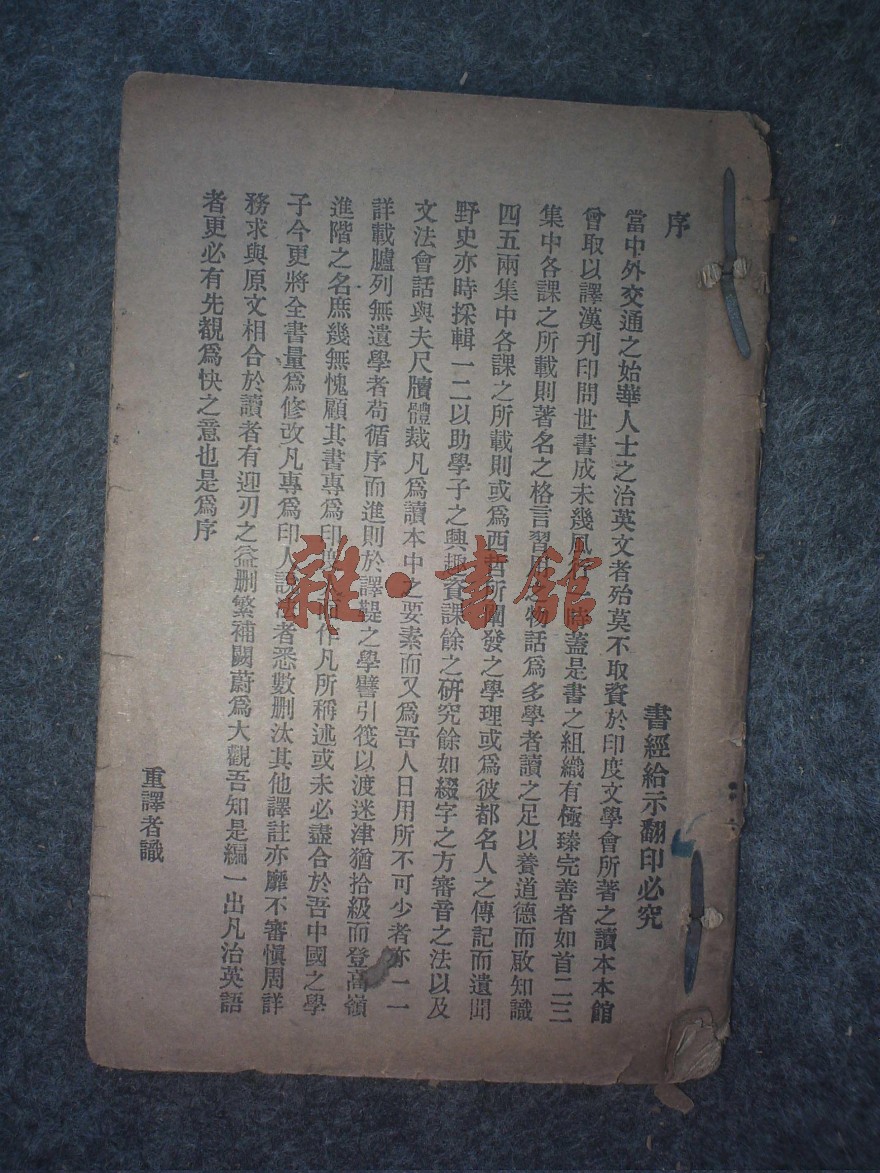 書經給示翻印必究
序
當中外交通之始華人士之治英文者殆莫不取資於印度文學會所著之讀本本館
曾取以譯漢刊印問世書成未幾風行一時蓋是書之組織有極臻完善者如首二三
集中各課之所載則著名之格言習見之物話為多學者讀之足以養道德而啟知識
四五兩集中各課之所載則或為西哲所闡發之學理或為彼都名人之傳記而遺聞
野史亦時採輯一二以助學子之興趣資課餘之研究餘如綴字之方審音之法以及
文法會話與夫尺牘體裁凡為讀本中之要素而又為吾人日用所不可少者亦一一
詳載臚列無遺學者苟循序而進則於譯鞮之學譬引筏以渡迷津猶拾級而登高嶺
進階之名庶幾無愧顧其書專為印而作凡所稱述或未必盡合於吾中國之學
子今更將全書量為修改凡專為印人說法者悉數刪汰其他譯註亦靡不審慎周詳
務求與原文相合於讀者有迎刃之益刪繁補闕蔚為大觀吾知是編一出凡治英語
者更必有先覩為快之意也是為序
重譯者識
雜·書館